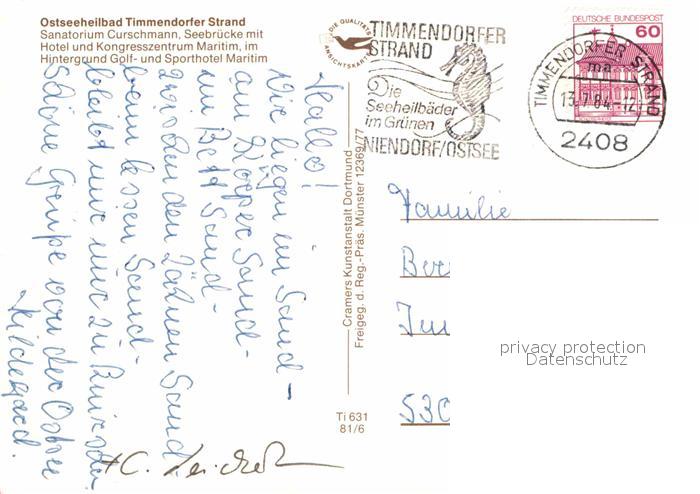 Ostseeheilbad Timmendorfer Strand
Sanatorium Curschmann, Seebrücke mit
Hotel und Kongresszentrum Maritim, im
Hintergrund Golf- und Sporthotel Maritim
DIE QUALITÄTS
ANSICHTSKARTE
TIMMENDORFER
STRAND
Die
Seeheilbäder
im Grünen
NIENDORF/OSTSEE
DEUTSCHE BUNDESPOST
60
TIMMENDORFER STRAND
ma
13.7.84-12
2408
Hallo!
Wir liegen im Sand -
am Körper Sand -
im Bett Sand -
zwischen den Zähnen Sand
beim Essen Sand -
bleibt mir nur zu
Schöne Grüße von der Ostsee
Hildegard.
Cramers Kunstanstalt Dortmund
Freigeg. d. Reg.-Präs. Münster 12369/77
Ti 631
81/6
Familie
530
privacy protection
Datenschutz